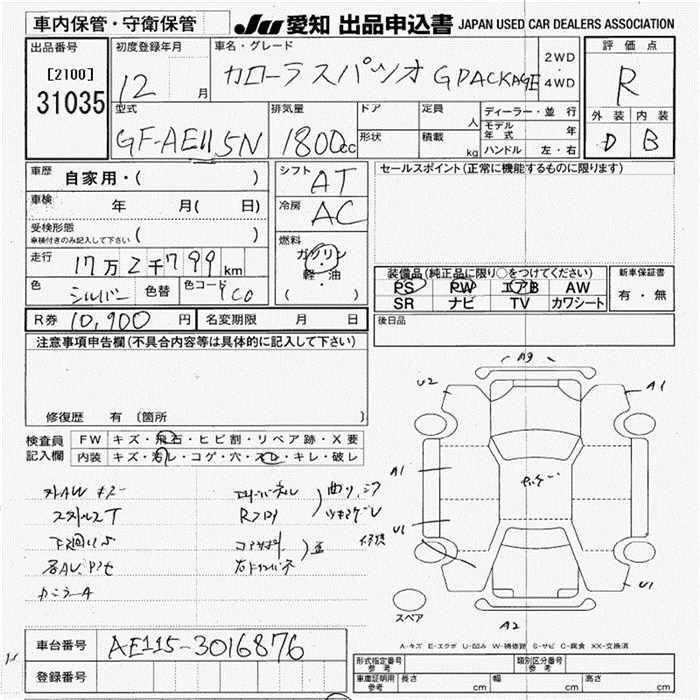 車内保管・守衛保管
JU 愛知 出品申込書 JAPAN USED CAR DEALERS ASSOCIATION
出品番号
[2100]
31035
初度登録年月
12 月
車名・グレード
カローラスパツオ G PACKAGE
2WD
・
4WD
評価点
R
外装 内装
D B
型式
GF-AE115N
排気量
1800cc
ドア
形状
定員
人
積載
kg
ディーラー・並行
モデル年式 年
ハンドル 左・右
車歴
自家用・( )
車検
年 月( 日)
受検形態
車検付きのみ記入して下さい ( )
走行
17万2千799km
色
シルバー
色替
色コード
1C0
シフト
AT
冷房
AC
燃料
ガソリン
・
軽・油
( )
セールスポイント(正常に機能するものに限ります)
装備品(純正品に限り○をつけてください)
PS PW エアB AW
SR ナビ TV カワシート
新車保証書
有・無
後日品
R券 10,900円 名変期限 月 日
注意事項申告欄(不具合内容等は具体的に記入して下さい)
修復歴 有〔箇所
検査員
記入欄
FW キズ・飛石・ヒビ割・リペア跡・X要
内装 キズ・汚レ・コゲ・穴・スレ・キレ・破レ
A9
U2
A1
A1
U1
U1
A2
スペア
A-キズ E-エクボ U-凹み W-補修跡 S-サビ C-腐食 XX-交換済
車台番号 AE115-3016876
登録番号
形式指定番号 参考
類別区分番号 参考
車庫証明用 参考 長さ cm 幅 cm 高さ cm